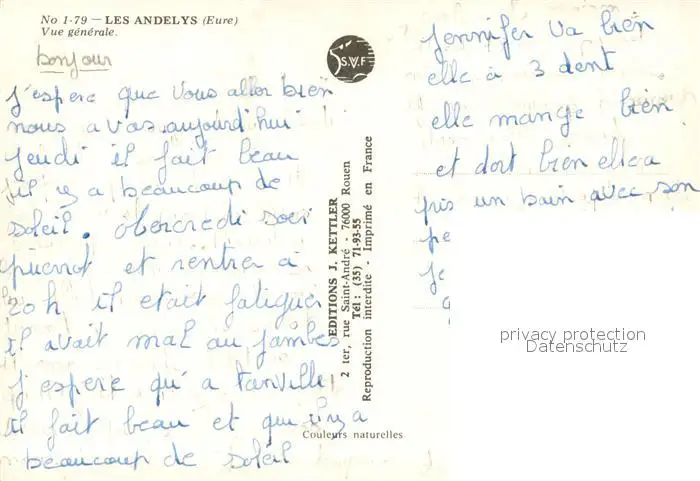 No 1-79 - LES ANDELYS (Eure)
Vue générale.
bonjour
j'espere que vous aller bien
nous a vas aujourd'hui
jeudi il fait beau
il y a beaucoup de
soleil. mercredi soir
pierrot et rentrer a
20h il etait fatiguer
il avait mal au jambes
j'espere qu'a tanville
il fait beau et qui il y a
beaucoup de soleil
S.V.F
EDITIONS J. KETTLER
2 ter, rue Saint-André - 76000 Rouen
Tél : (35) 71-93-55
Reproduction interdite - Imprimé en France
Couleurs naturelles
Jennifer va bien
elle à 3 dent
elle mange bien
et dort bien elle a
pris un bain avec son
pe
je
privacy protection
Datenschutz